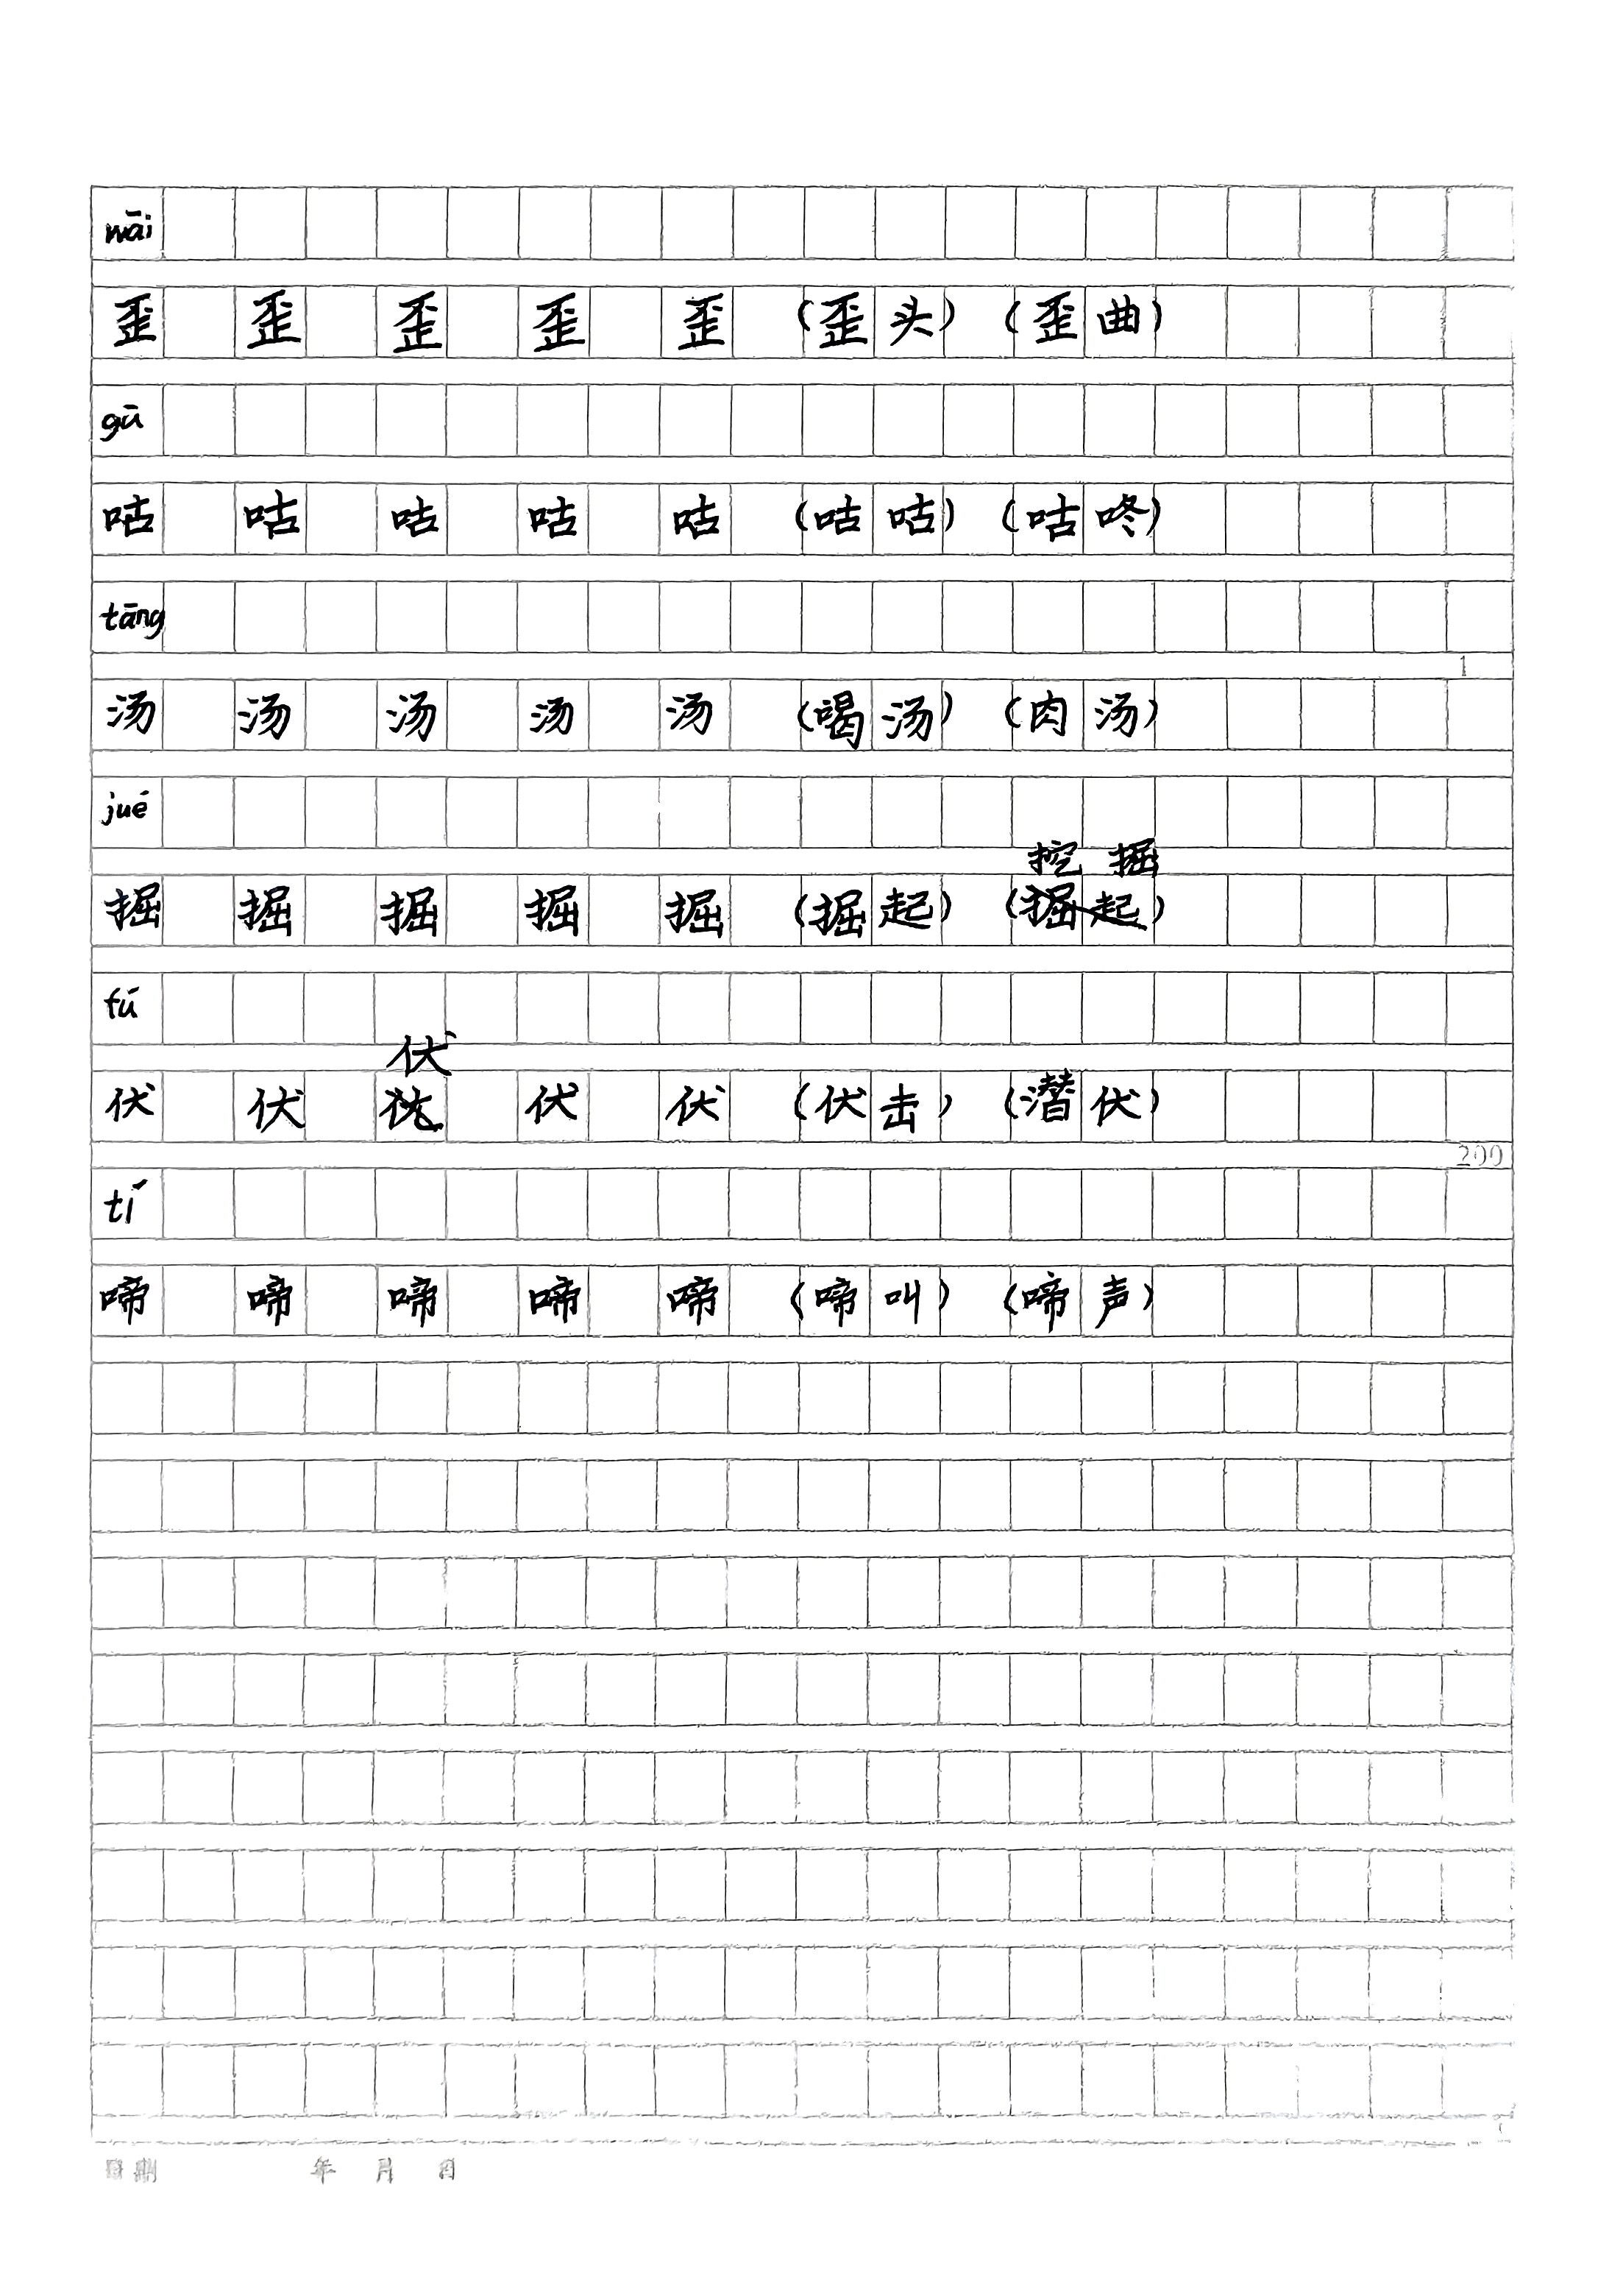 wāi
歪 歪 歪 歪 歪 (歪头) (歪曲)
gū
咕 咕 咕 咕 咕 (咕咕) (咕咚)
tāng
1
汤 汤 汤 汤 汤 (喝汤) (肉汤)
jué
挖掘
掘 掘 掘 掘 掘 (掘起) (掘起)
fú
伏
伏 伏 伏 伏 (伏击) (潜伏)
200
tí
啼 啼 啼 啼 啼 (啼叫) (啼声)
日期 年 月 日